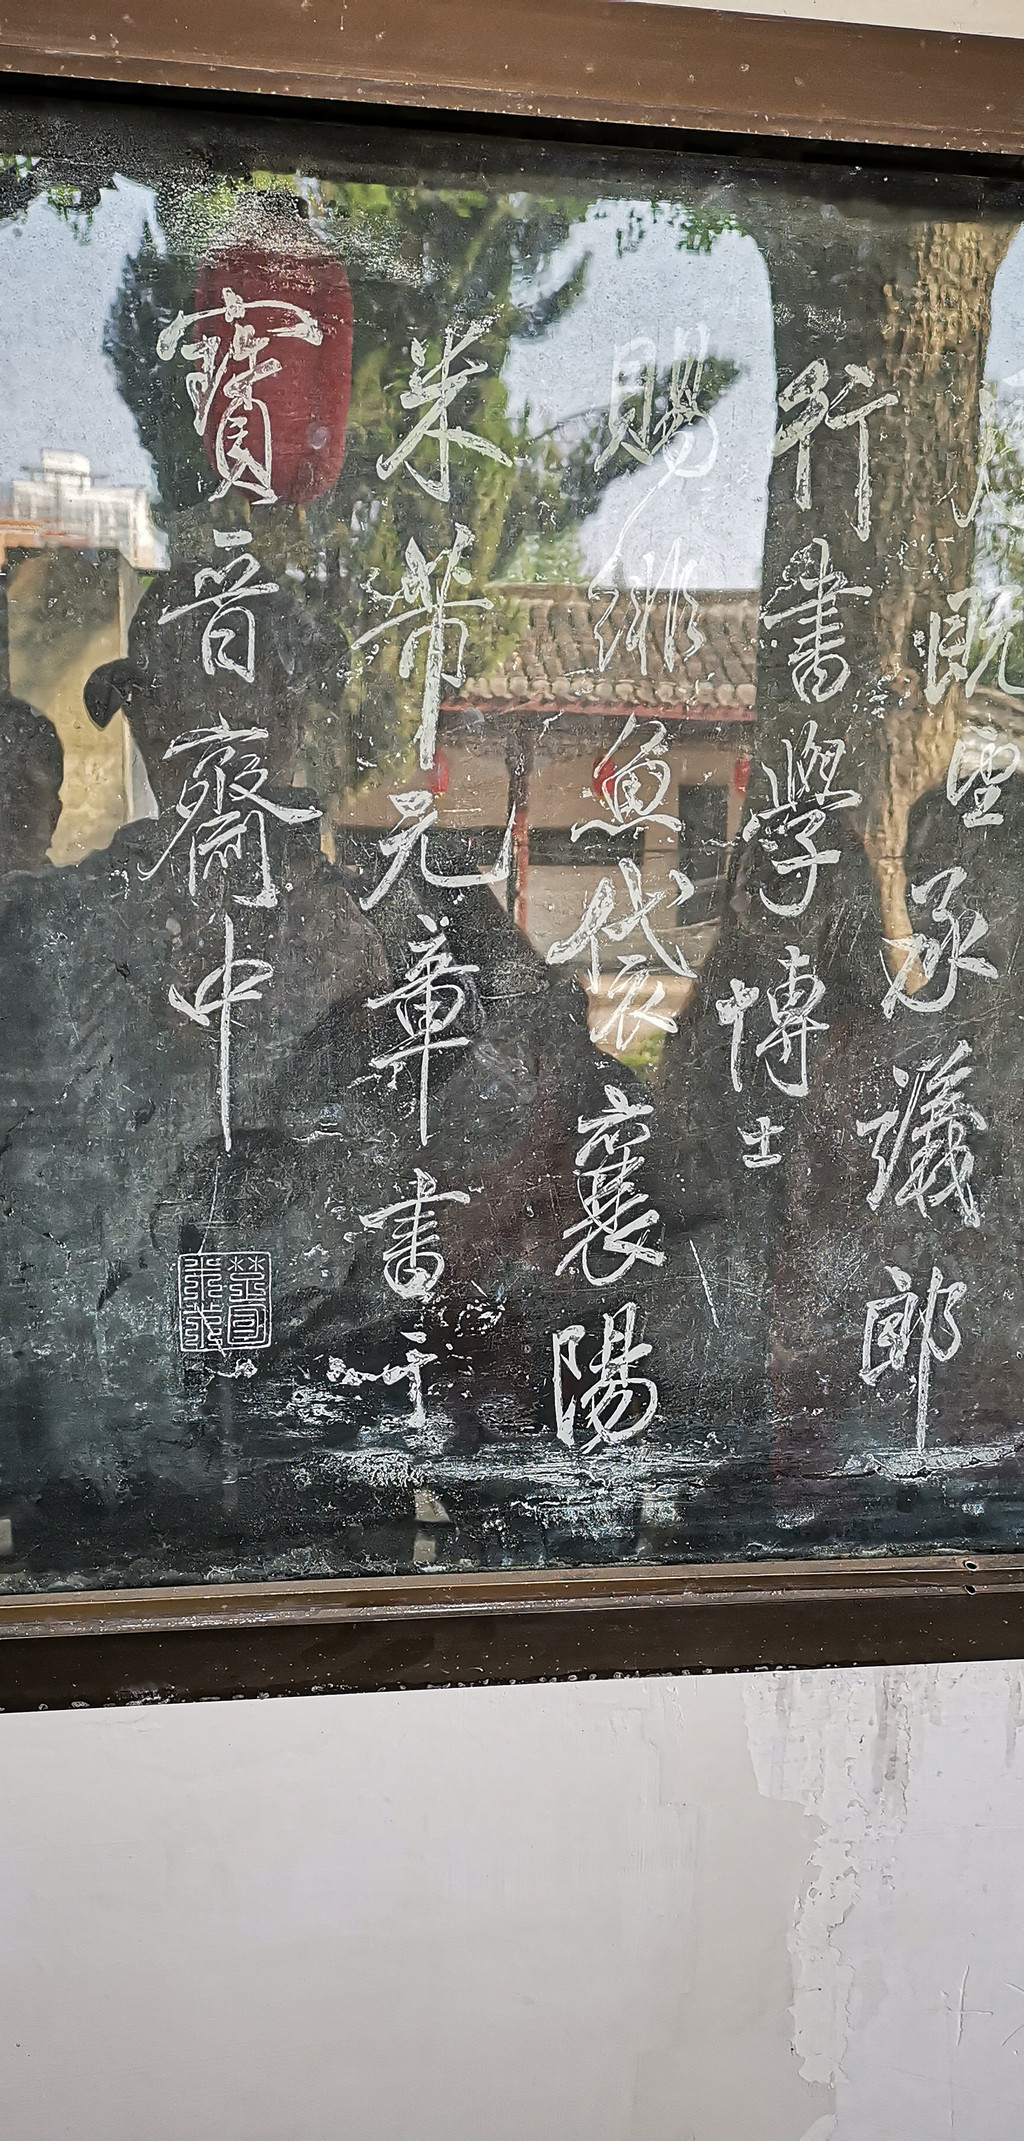 既望承議郎
行書學博士
賜緋魚袋襄陽
米芾元章書于
寶晉齋中
楚國米芾